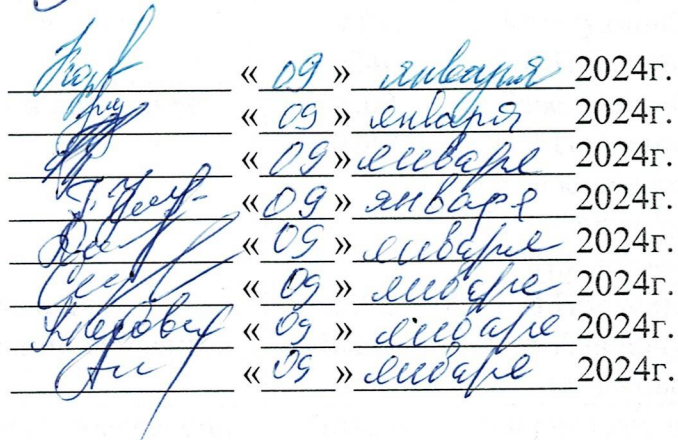 « 09 » января 2024г.
« 09 » января 2024г.
« 09 » января 2024г.
« 09 » января 2024г.
« 09 » января 2024г.
« 09 » января 2024г.
« 09 » января 2024г.
« 09 » января 2024г.